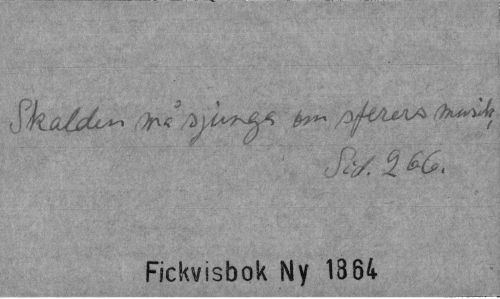 Skalden må sjunga om sferers musik,
Sid. 266.
Fickvisbok Ny 1864